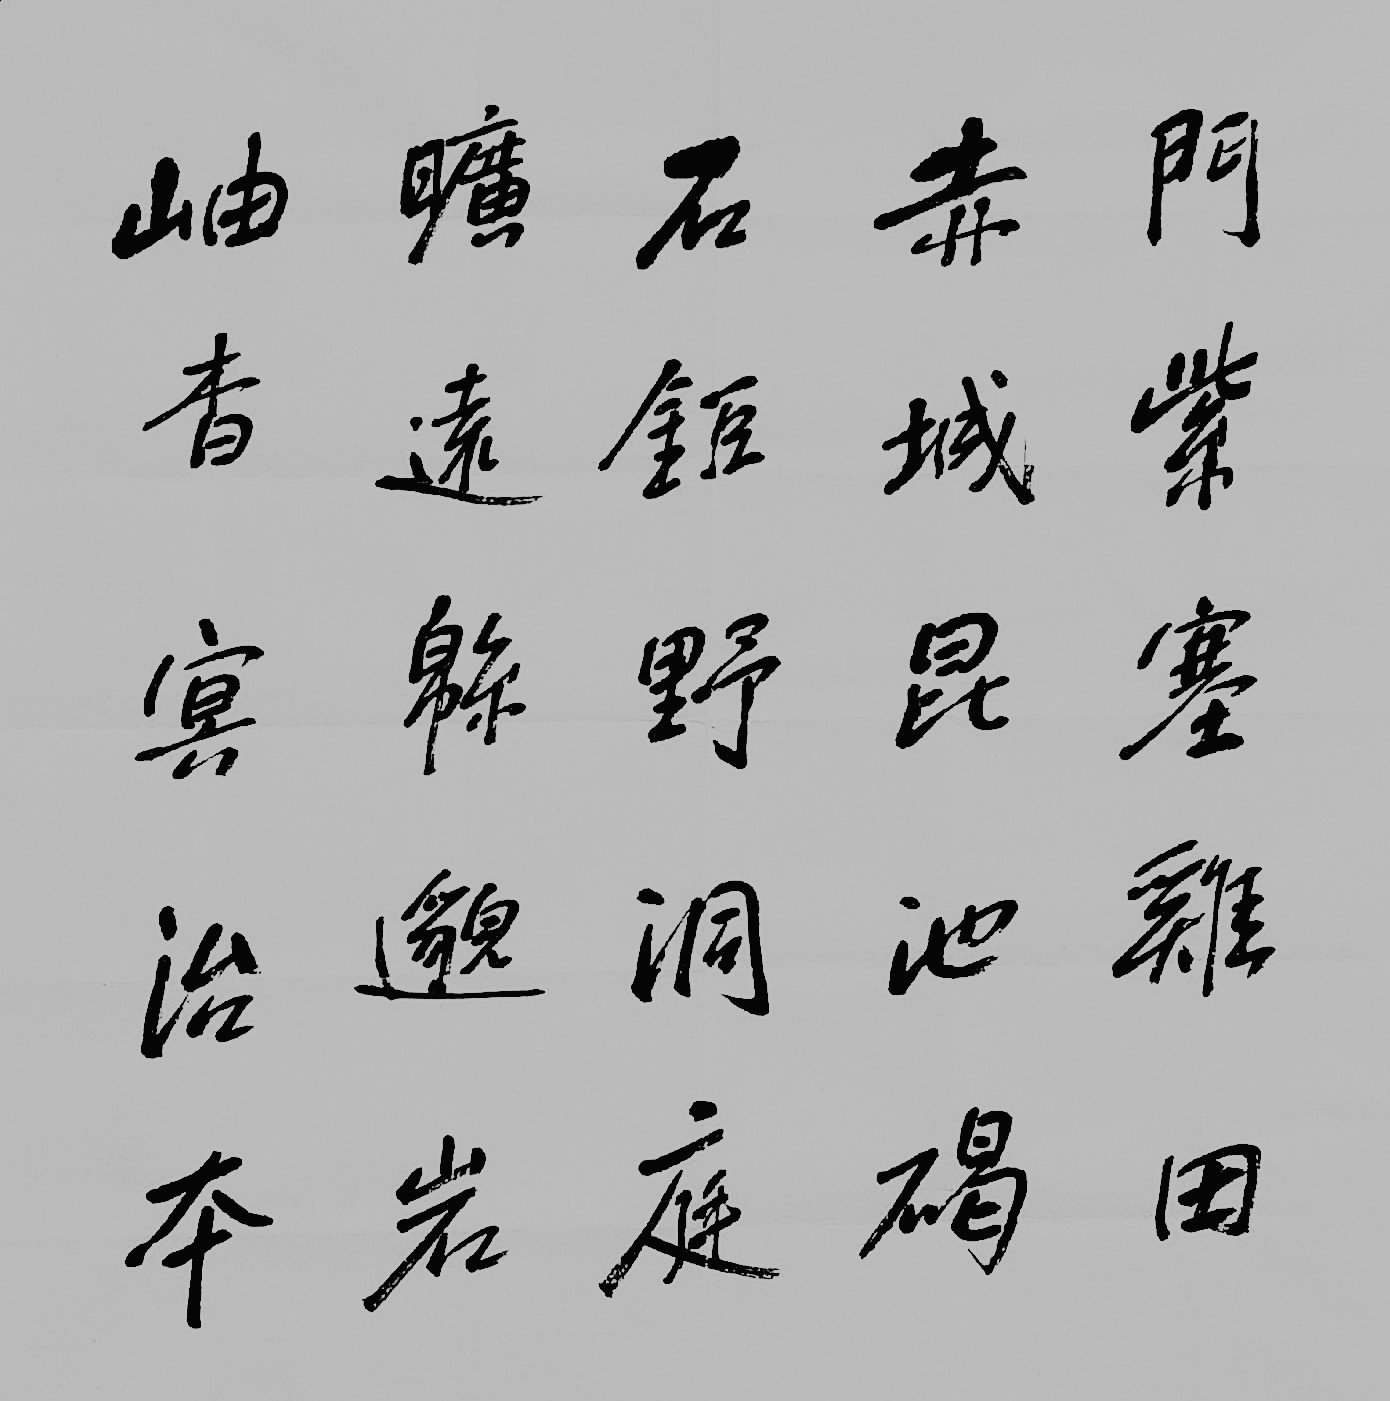 門紫塞雞田
赤城昆池碣
石鉅野洞庭
曠遠緜邈岩
岫杳冥治本